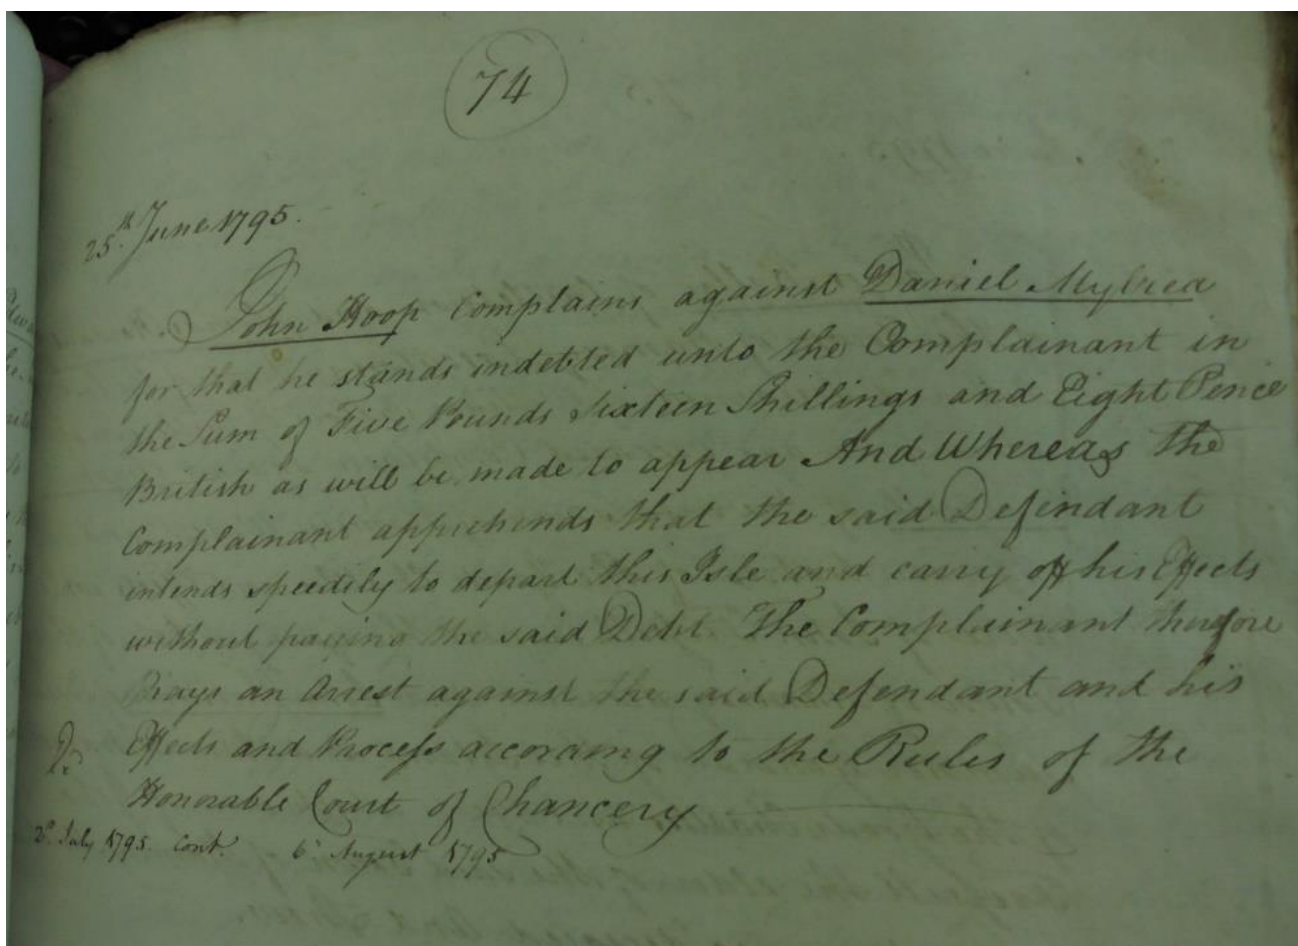 74
25th June 1795.
John Hoop Complains against Daniel Mylrea
for that he stands indebted unto the Complainant in
the Sum of Five Pounds Sixteen Shillings and Eight Pence
British as will be made to appear And Whereas the
Complainant apprehends that the said Defendant
intends speedily to depart this Isle and carry off his Effects
without paying the said Debt. The Complainant therefore
Prays an Arrest against the said Defendant and his
Effects and Process according to the Rules of the
Honorable Court of Chancery
July 1795. Cont. 6 August 1795